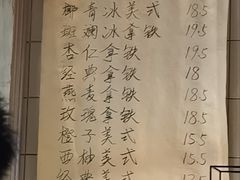 椰青冰美式 18.5
斑斓冰拿铁 19.5
杏仁拿铁 19.5
经典拿铁 18
燕麦拿铁 18.5
玫瑰拿铁 18.5
橙子美式 15.5
西柚美式 15.5
经典美式